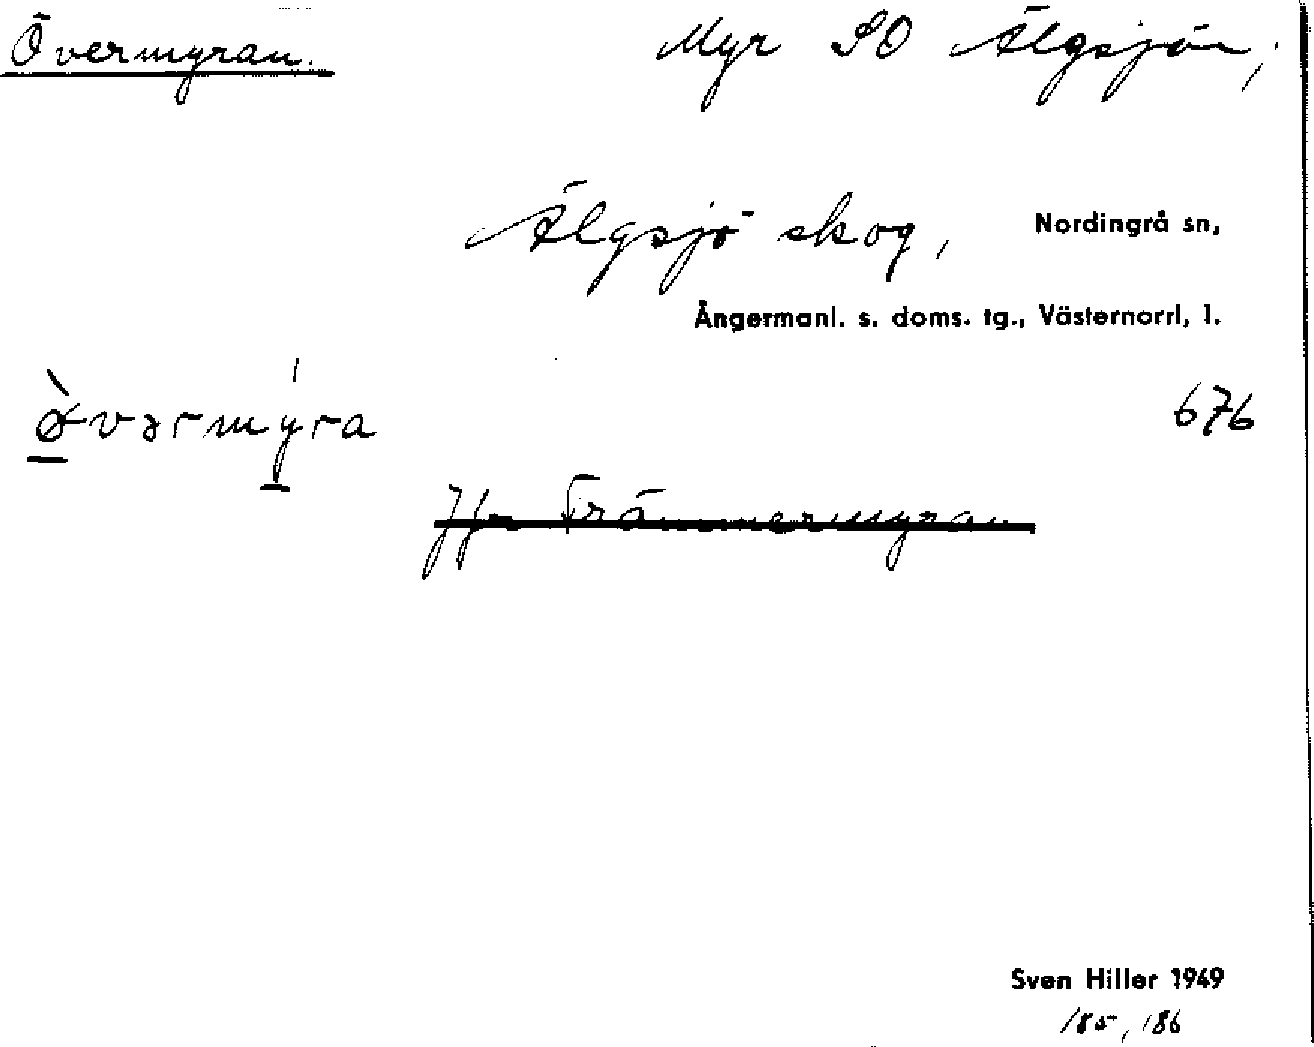 Övermyran. Myr SO Älgsjön,
Älgsjö skog, Nordingrå sn,
Ångermanl. s. doms. tg., Västernorrl, l.
676
Jfr Främmermyran
Sven Hiller 1949
185, 186